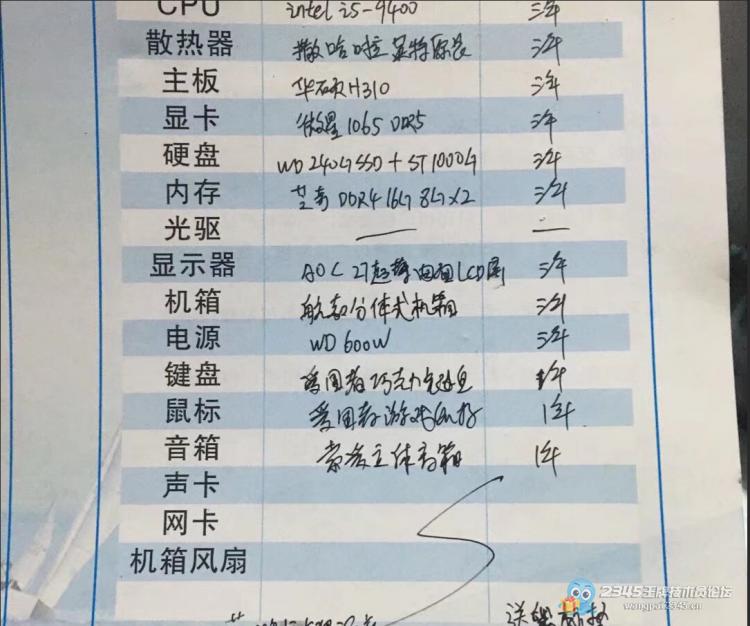 CPU intel i5-9400 三年
散热器 散哈啦 英特原装 三年
主板 华硕H310 三年
显卡 微星 1065 DDR5 三年
硬盘 WD 240G SSD + ST1000G 三年
内存 芝奇 DDR4 16G 8G×2 三年
光驱 — —
显示器 AOC 27 LCD 三年
机箱 分体式机箱 三年
电源 WD 600W 三年
键盘 爱国者巧克力 1年
鼠标 爱国者游戏 1年
音箱 立体音箱 1年
声卡
网卡
机箱风扇
送
2345王牌技术员论坛
wangpai2345.cn